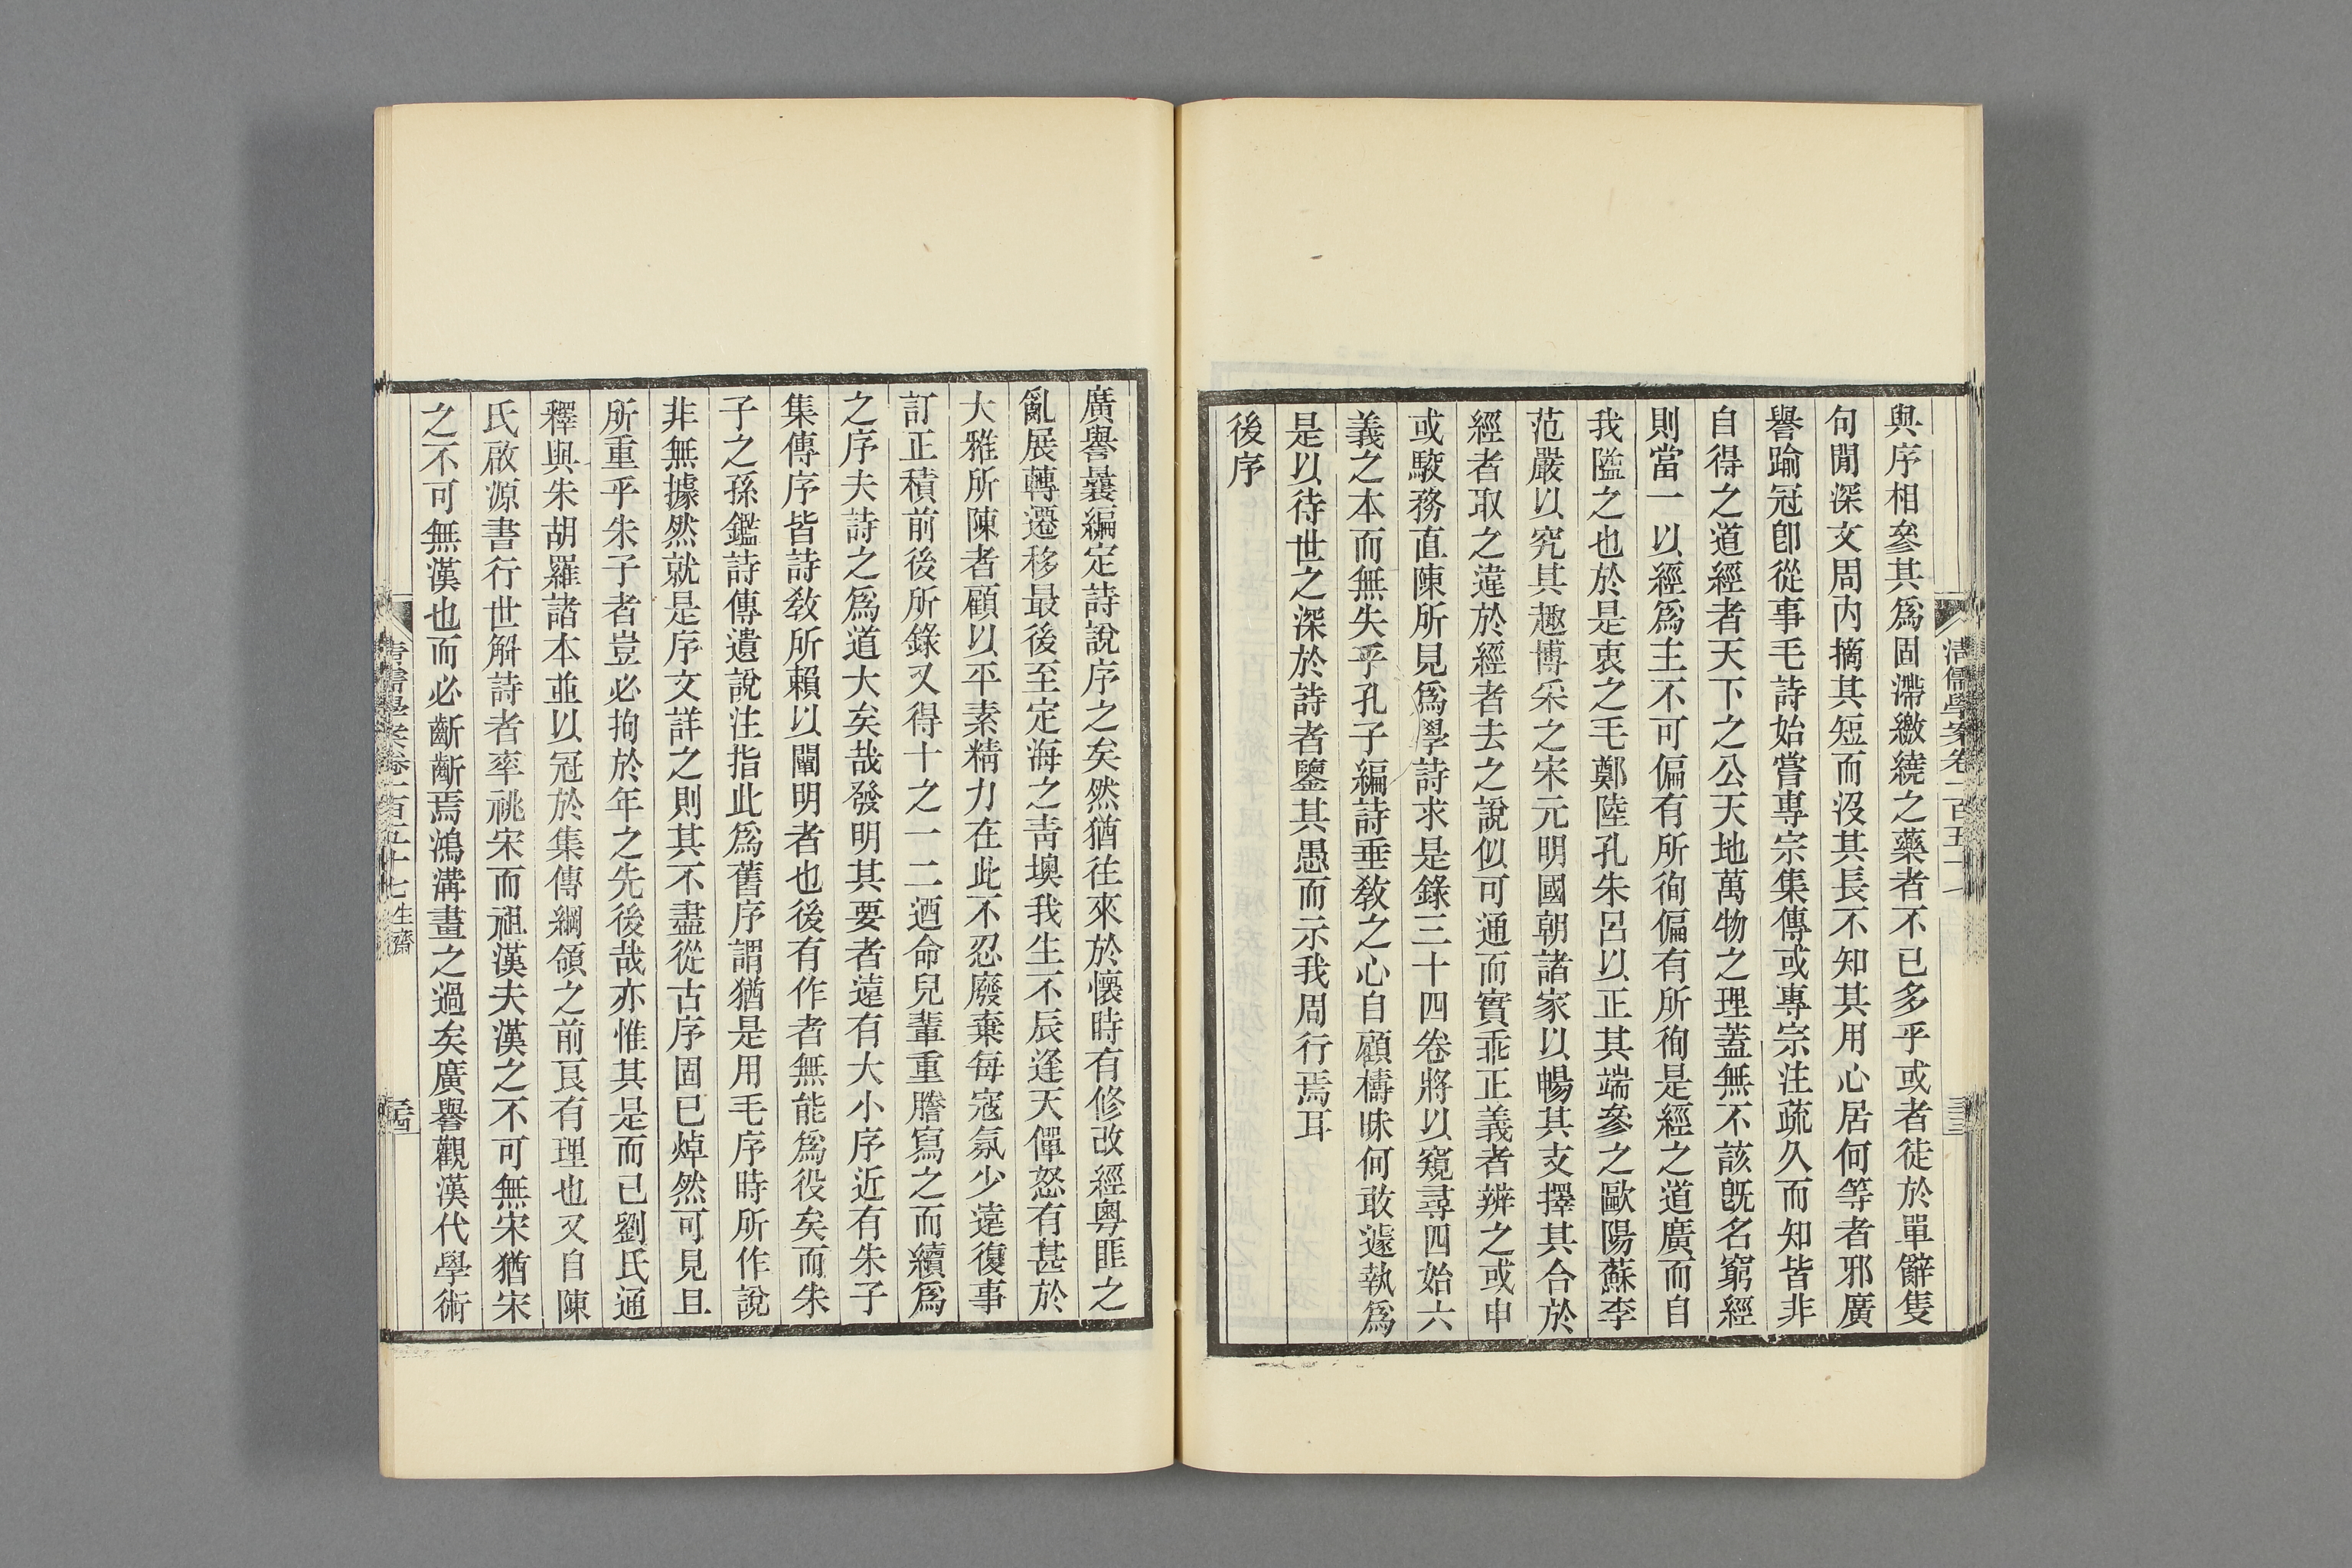 與序相參其爲固滯繳繞之藥者不已多乎或者徒於單辭隻
句閒深文周内摘其短而沒其長不知其用心居何等者邪廣
譽踰冠卽從事毛詩始嘗專宗集傳或專宗注疏久而知皆非
自得之道經者天下之公天地萬物之理蓋無不該旣名窮經
則當一以經爲主不可偏有所徇偏有所徇是經之道廣而自
我隘之也於是衷之毛鄭陸孔朱呂以正其端參之歐陽蘇李
范嚴以究其趣博采之宋元明國朝諸家以暢其支擇其合於
經者取之違於經者去之說似可通而實乖正義者辨之或申
或駮務直陳所見爲學詩求是錄三十四卷將以窺尋四始六
義之本而無失乎孔子編詩垂敎之心自顧檮昧何敢遽執爲
是以待世之深於詩者鑒其愚而示我周行焉耳
後序
清儒學案卷一百五十七
三三
廣譽曩編定詩說序之矣然猶往來於懷時有修改經粵匪之
亂展轉遷移最後至定海之靑墺我生不辰逢天僤怒有甚於
大雅所陳者顧以平素精力在此不忍廢棄每寇氛少遠復事
訂正積前後所錄又得十之一二迺命兒輩重謄寫之而續爲
之序夫詩之爲道大矣哉發明其要者遠有大小序近有朱子
集傳序皆詩敎所賴以闡明者也後有作者無能爲役矣而朱
子之孫鑑詩傳遺說注指此爲舊序謂猶是用毛序時所作說
非無據然就是序文詳之則其不盡從古序固已焯然可見且
所重乎朱子者豈必拘於年之先後哉亦惟其是而已劉氏通
釋與朱胡羅諸本並以冠於集傳綱領之前良有理也又自陳
氏啟源書行世解詩者率祧宋而祖漢夫漢之不可無宋猶宋
之不可無漢也而必齗齗焉鴻溝畫之過矣廣譽觀漢代學術
清儒學案卷一百五十七 生齋
三四